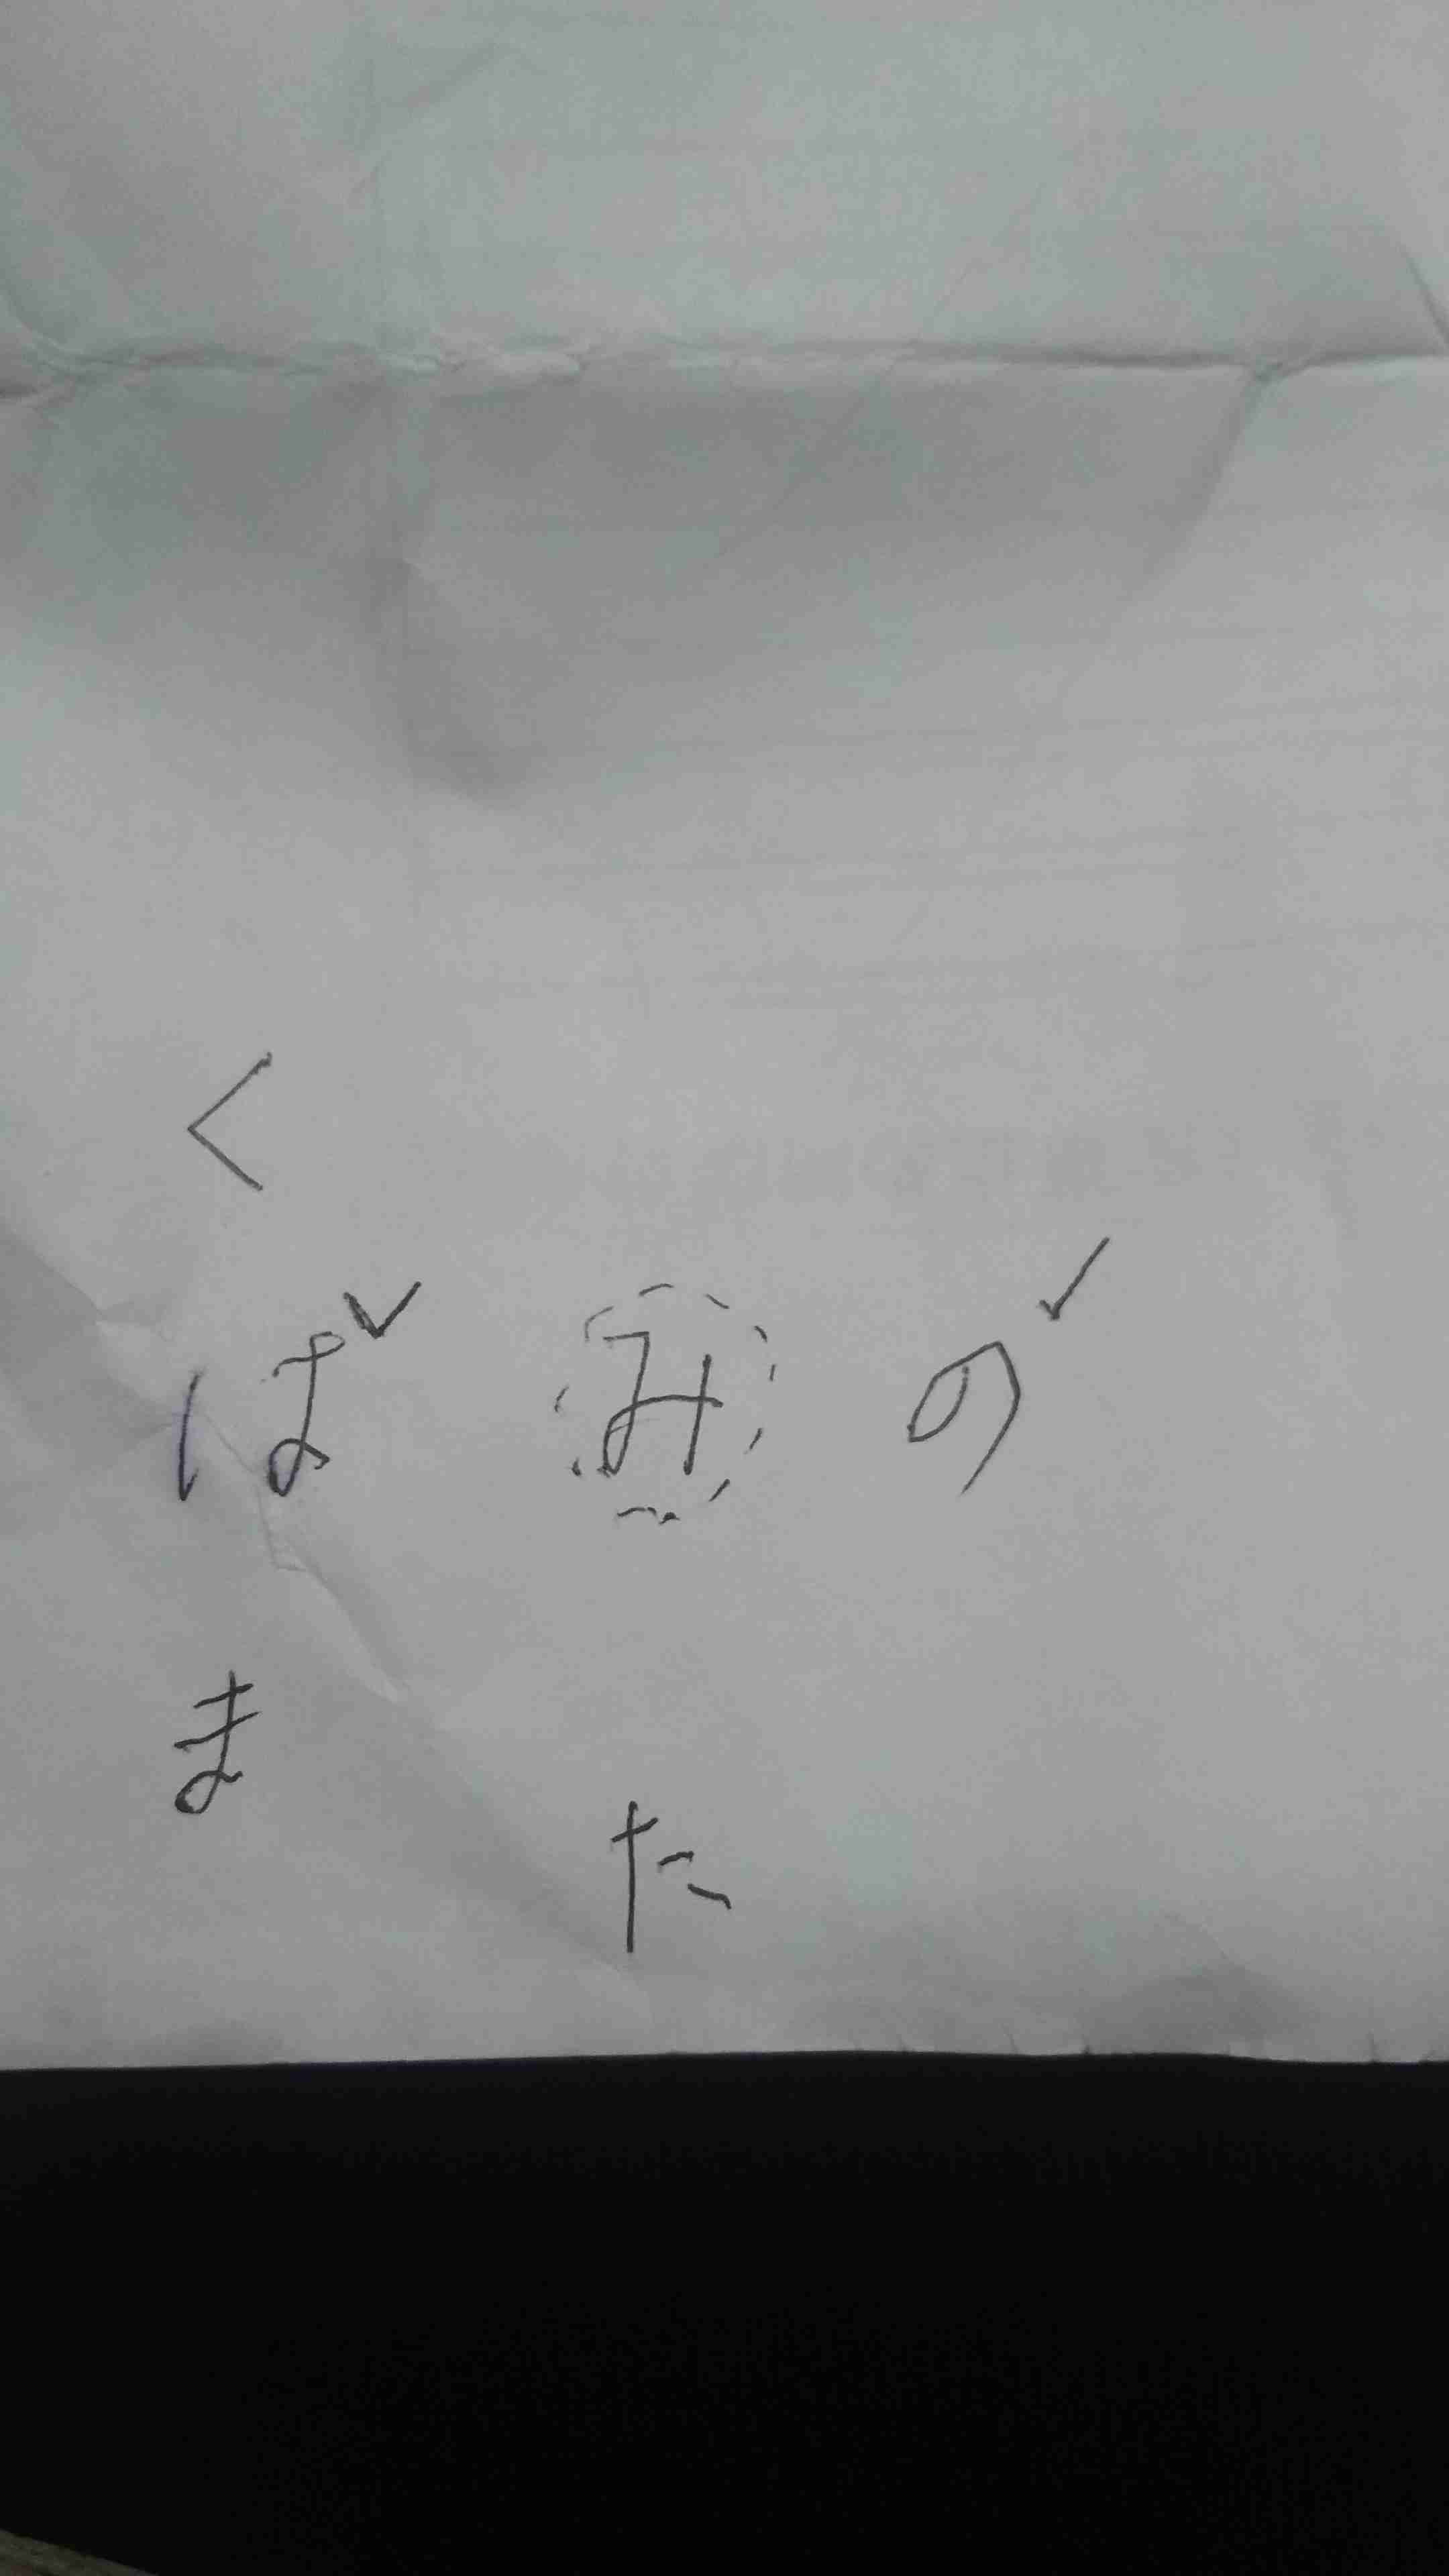 く
は✓ み の✓
ま
た